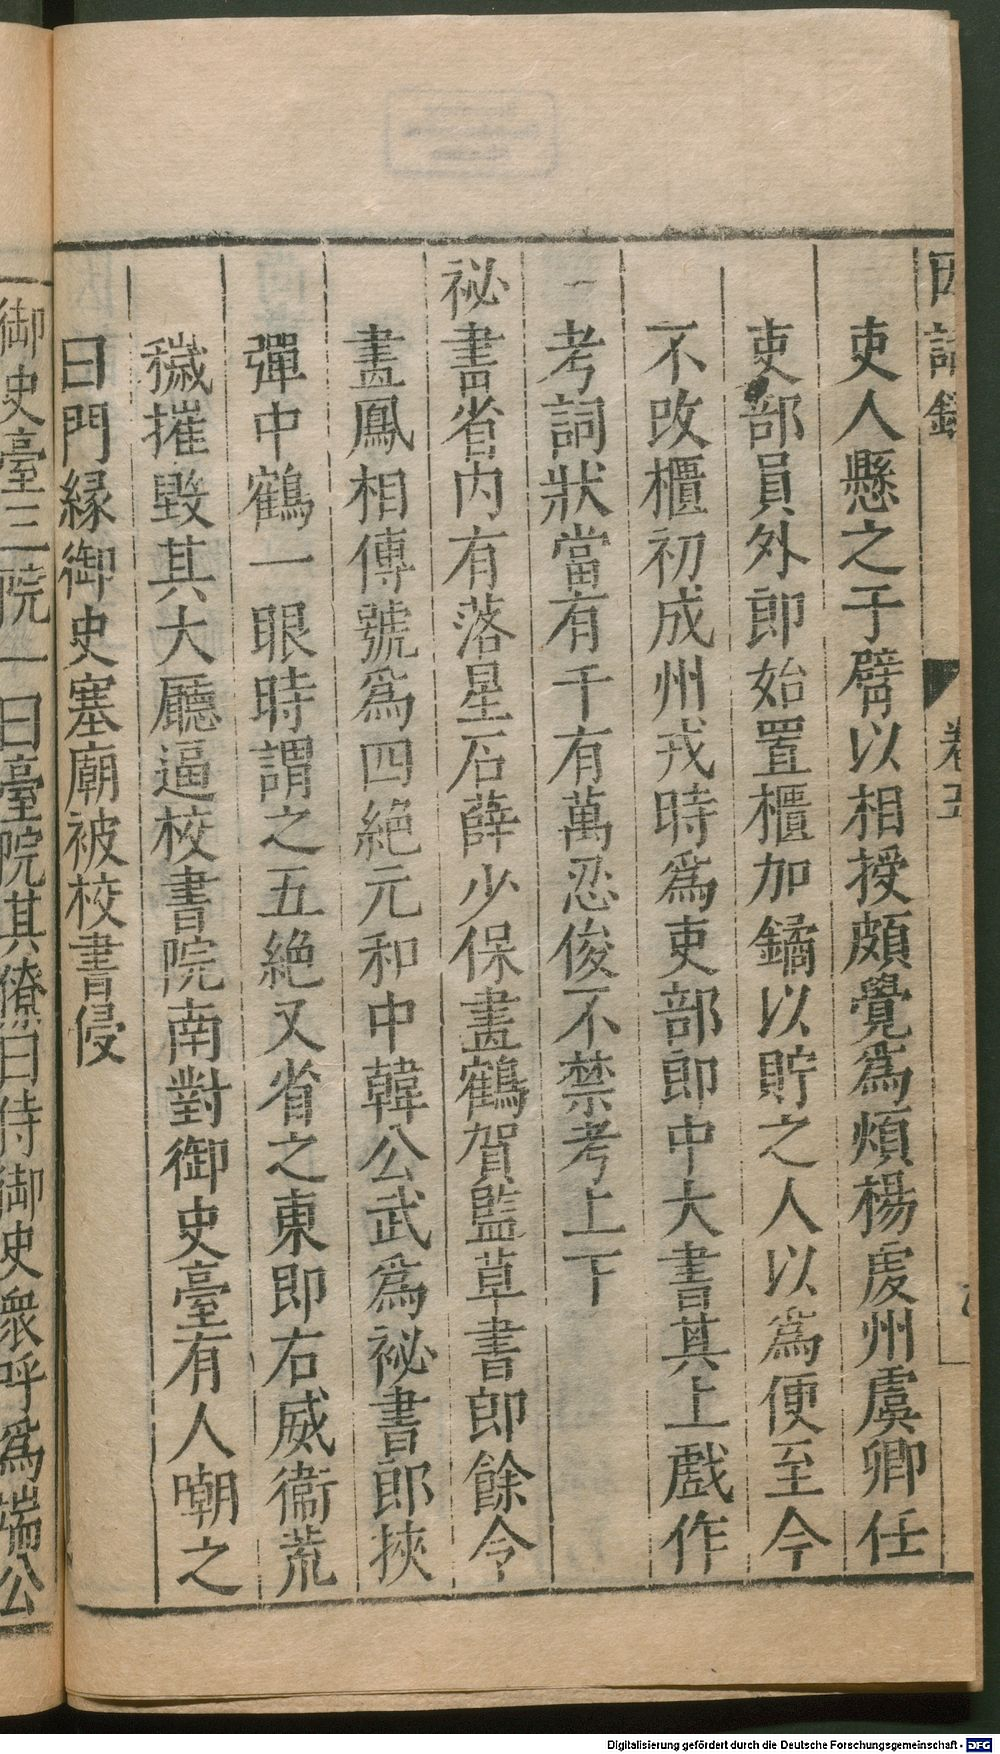 因話錄 卷五
吏人懸之于臂以相授頗覺爲煩楊虔州虞卿任
吏部員外郎始置櫃加鐍以貯之人以爲便至今
不改櫃初成州戎時爲吏部郎中大書其上戲作
考詞狀當有千有萬忍俊不禁考上下
祕書省內有落星石薛少保畫鶴賀監草書郎餘令
畫鳳相傳號爲四絕元和中韓公武爲祕書郎挾
彈中鶴一眼時謂之五絕又省之東即右威衞荒
穢摧毀其大廳逼校書院南對御史臺有人嘲之
曰門緣御史塞廟被校書侵
御史臺三院一曰臺院其僚曰侍御史衆呼爲端公
Digitalisierung gefördert durch die Deutsche Forschungsgemeinschaft - DFG